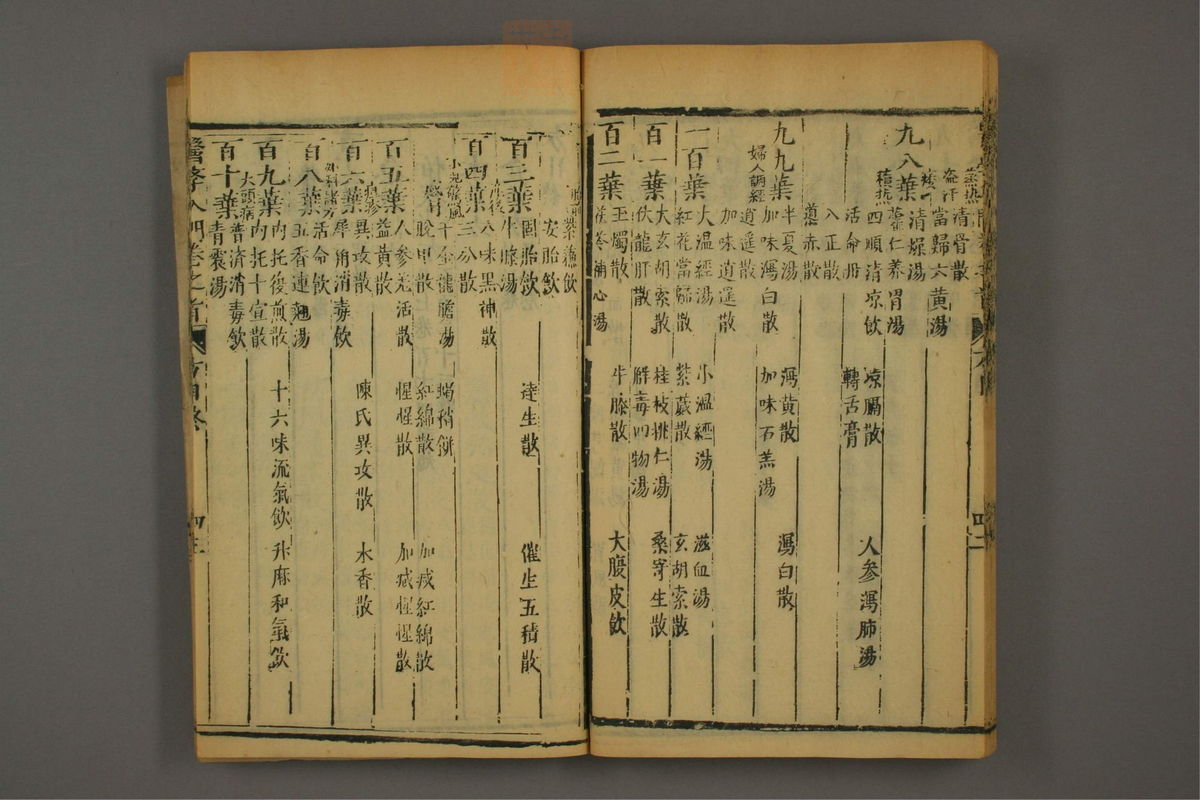 蒸熱 清骨散
盜汗 當歸六黃湯
九八葉 清燥湯
藿仁養胃湯
積熱 四順清凉飲 凉膈散 人參瀉肺湯
活命丹 轉舌膏
八正散
導赤散
九九葉 半夏湯 瀉黃散 瀉白散
婦人調經 加味瀉白散 加味石羔湯
逍遥散
加味逍遥散
一百葉 大温經湯 小温經湯 滋血湯
紅花當歸散 紫葳散 玄胡索散
百一葉 大玄胡索散 桂枝桃仁湯 桑寄生散
伏龍肝散 解毒四物湯
百二葉 玉燭散 牛膝散 大腹皮飲
補心湯
紫蘓飲
安胎飲
百三葉 固胎飲 達生散 催生五積散
牛膝湯
百四葉 八味黑神散
三分散
小兒驚風 千金龍膽湯 蝎稍餅
脫甲散 紅綿散 加减紅綿散
百五葉 人參羗活散 惺惺散 加减惺惺散
益黃散
百六葉 異攻散 陳氏異攻散 木香散
犀角消毒飲
外科諸方
百八葉 活命飲
五香連翹湯
百九葉 內托復煎散 十六味流氣飲 升麻和氣飲
內托十宣散
大頭病 普濟消毒飲
百十葉 青震湯
醫學入門卷之首 方目終 四三